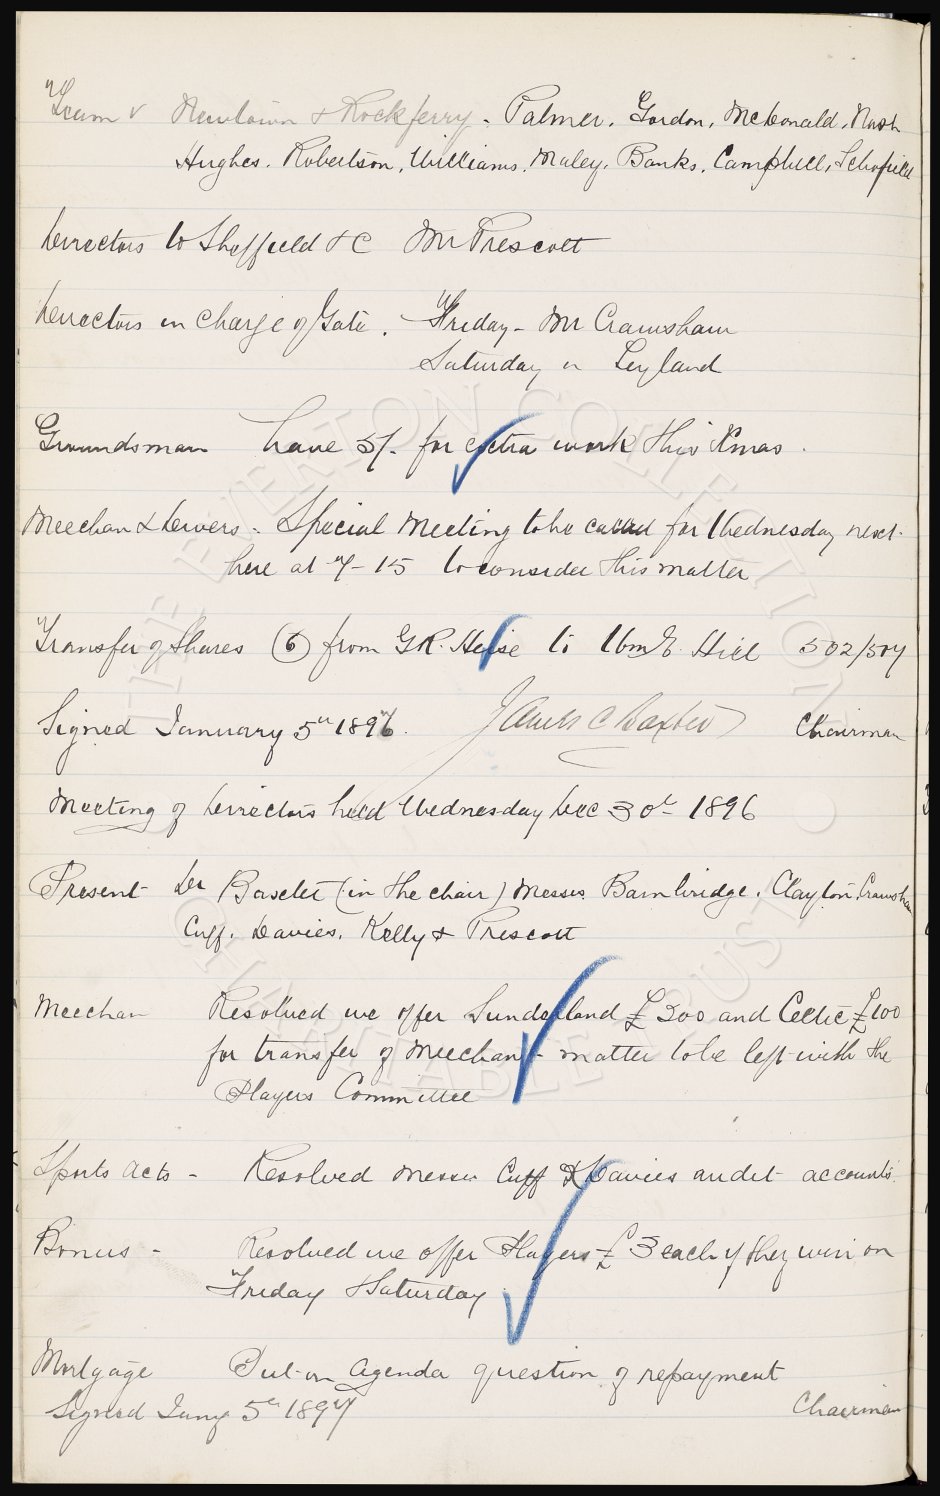 Team v Newtown & Rockferry. Palmer. Gordon. McDonald. Nash
Hughes. Robertson. Williams. Maley. Banks. Campbell. Schofield
Directors to Sheffield &C Mr Prescott
Directors in charge of Gate. Friday - Mr Crawsham
Saturday " Leyland
Groundsman have 5/- for extra work this Xmas.
Meechan & Devers - Special Meeting to be called for Wednesday next.
here at 7-15 to consider this matter
Transfer of Shares (6) from G.R. to Wm E. Hill 502/507
Signed January 5th 1897. James C Baxter Chairman
Meeting of Directors held Wednesday Dec 30th 1896
Present Dr Baxter (in the chair) Messrs. Bainbridge. Clayton. Crawsham
Cuff. Davies. Kelly & Prescott
Meechan Resolved we offer Sunderland £200 and Celtic £100
for transfer of Meechan - matter to be left with the
Players Committee
Sports Acts - Resolved Messrs Cuff & Davies audit accounts.
Bonus - Resolved we offer Players £3 each if they win on
Friday & Saturday
Mortgage Put on Agenda question of repayment
Signed Jany 5th 1897 Chairman
THE EVERTON COLLECTION
CHARITABLE TRUST